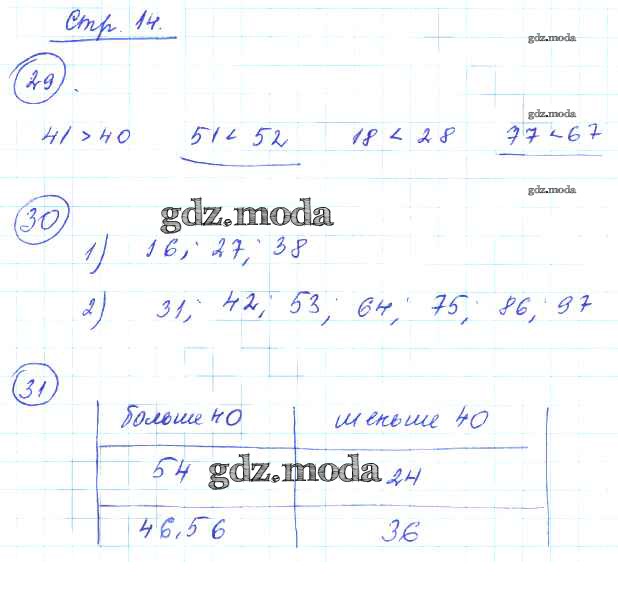 Стр. 14.
gdz.moda
29.
gdz.moda
41 > 40 51 < 52 18 < 28 77 < 67
gdz.moda
30
gdz.moda
1) 16; 27; 38
2) 31; 42; 53; 64; 75; 86; 97
31
больше 40 меньше 40
54 24
gdz.moda
46,56 36